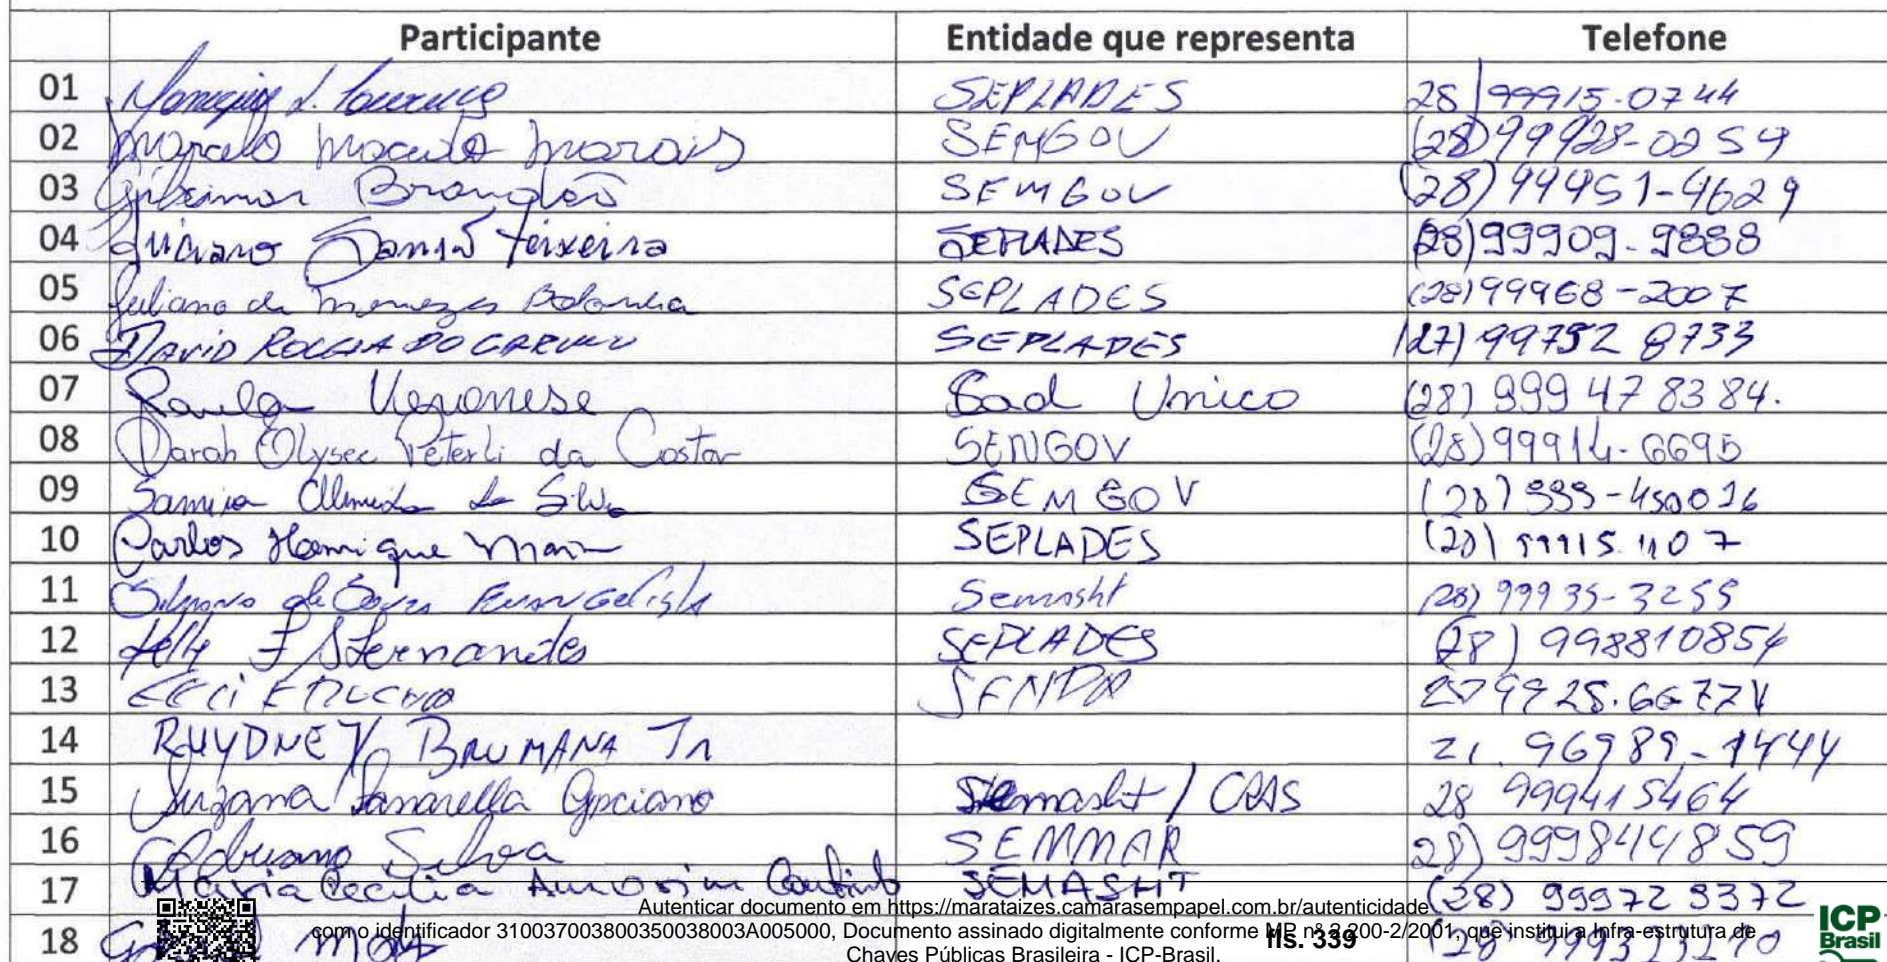 Participante Entidade que representa Telefone
01 SEPLADES 28 99915-0744
02 Marcelo Macedo Morais SEMGOV (28) 99928-0259
03 Gilximar Brandão SEMGOV (28) 99951-4629
04 Luciano Teixeira SEPLADES (28) 99909-9888
05 Juliano de Menezes SEPLADES (28) 99968-2007
06 DAVID ROCHA DO CARMO SEPLADES (27) 99752 8733
07 Paula Veronese Cad Unico (28) 999 47 83 84.
08 Darah Olysee Peterli da Costa SEMGOV (28) 99914-6695
09 Samira Almeida da Silva SEMGOV (28) 999-450016
10 Carlos Henrique SEPLADES (28) 99915.1107
11 de Souza Evangelista Semasht (28) 99935-3255
12 Fernandes SEPLADES (28) 998810854
13
14 RHYDNEY BRUMANA Jr 21. 96989-1444
15 Suzana Graciano Semasht / CRAS 28 999415464
16 Adriano Silva SEMMAR 28) 999844859
17 Maria Cecilia Amorim SEMASHT (28) 99972 9372
Autenticar documento em https://marataizes.camarasempapel.com.br/autenticidade
18 com o identificador 310037003800350038003A005000, Documento assinado digitalmente conforme MP nº 2.200-2/2001, que institui a Infra-estrutura de
Chaves Públicas Brasileira - ICP-Brasil.
fls. 339
ICP
Brasil